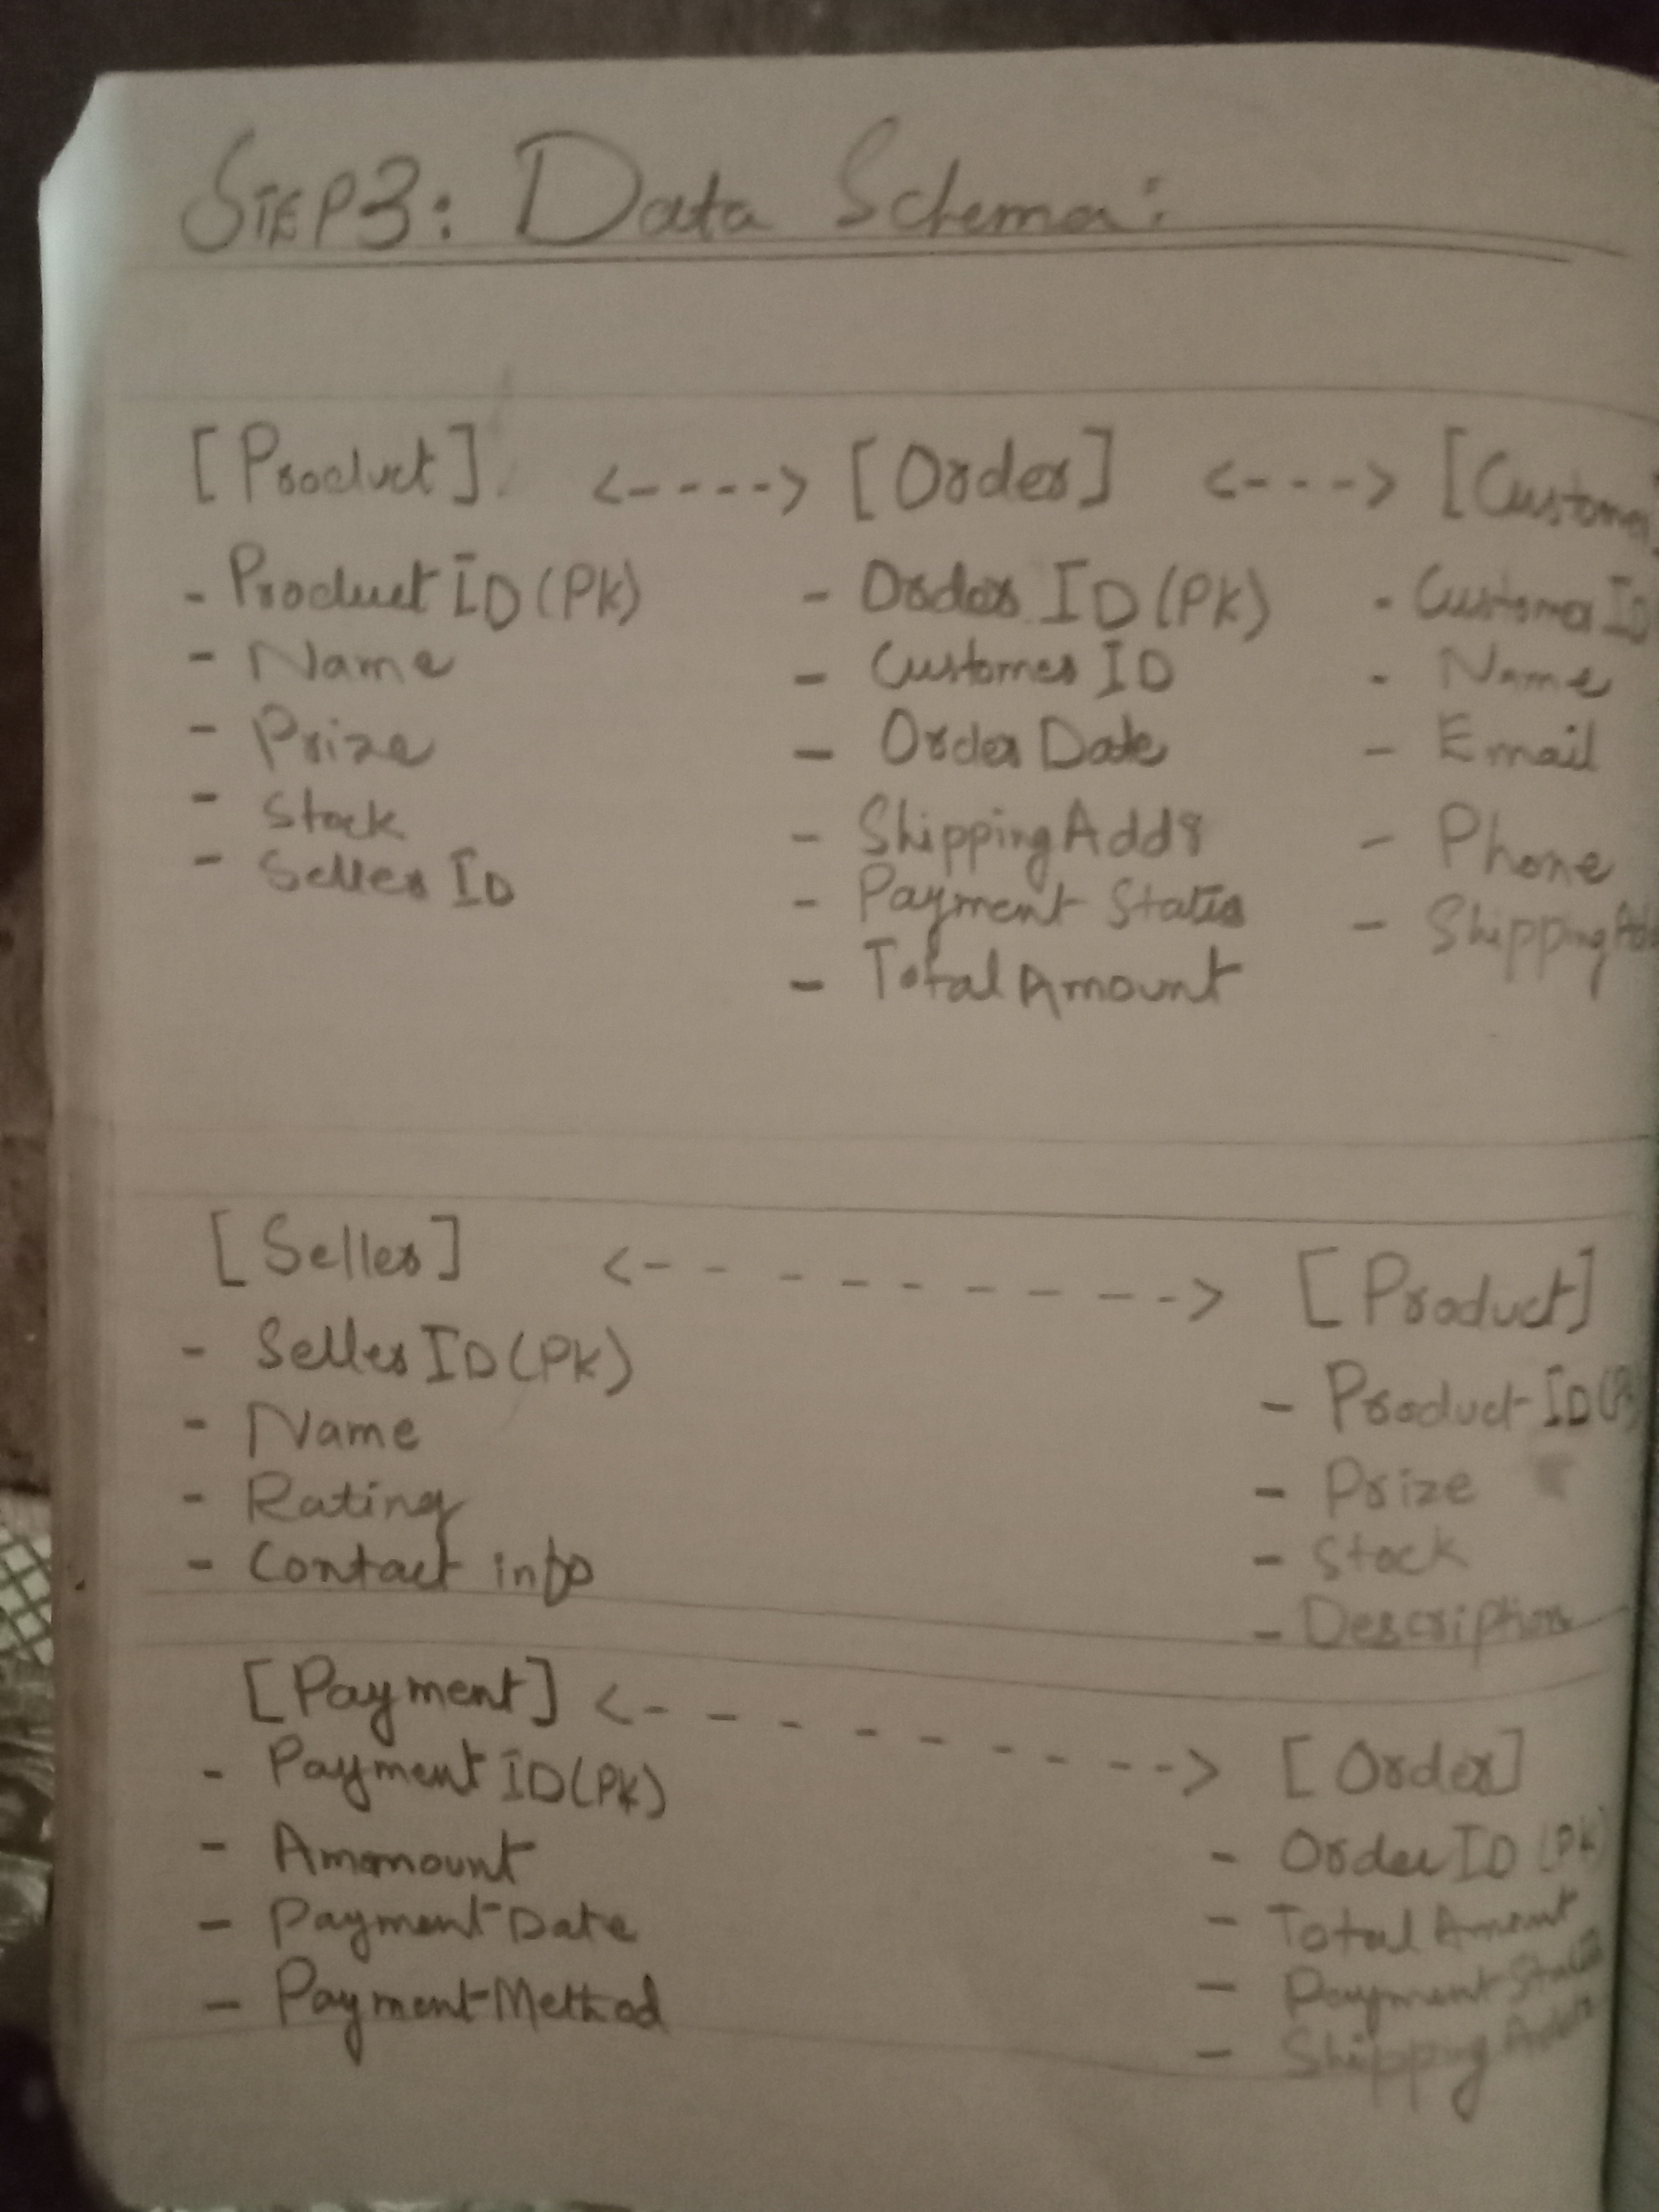 STEP3: Data Schema:
[Product] <----> [Order] <---> [Customer]
- Product ID (PK)
- Name
- Prize
- Stock
- Seller ID
- Order ID (PK)
- Customer ID
- Order Date
- Shipping Addr
- Payment Status
- Total Amount
- Customer ID
- Name
- Email
- Phone
- Shipping
[Seller] <- - - - - - - -> [Product]
- Seller ID (PK)
- Name
- Rating
- Contact info
- Product ID (P
- Prize
- Stock
- Description
[Payment] <- - - - - - - -> [Order]
- Payment ID (PK)
- Amomount
- Payment Date
- Payment Method
- Order ID (PK)
- Total Amount
- Payment
- Shipping